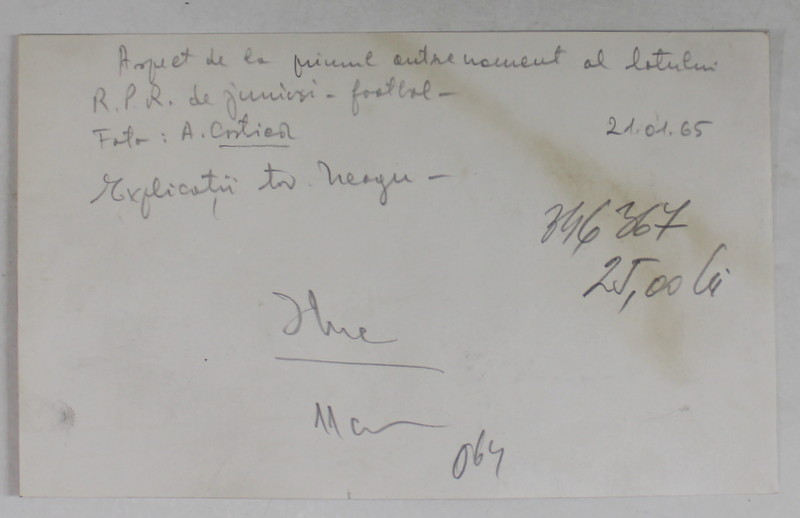 Aspect de la primul antrenament al lotului
R.P.R. de juniori - footbal -
Foto : A. Costicol
21.01.65
Explicații tov. Neagu -
346 367
25,00 lei
064